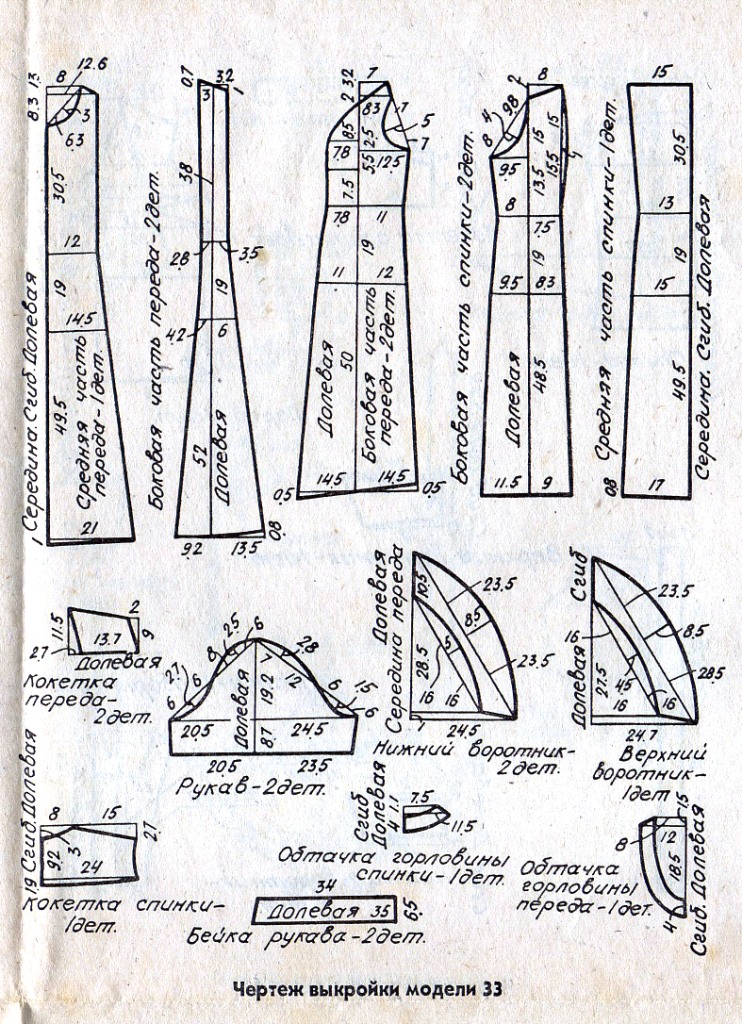 8
12.6
1.3
8.3
3
6.3
30.5
12
19
14.5
49.5
21
Середина. Сгиб. Долевая
Средняя часть
переда-1дет.
0.7
3.2
3
1
38
2.8
3.5
19
4.2
6
52
9.2
13.5
0.8
Боковая часть переда-2дет.
Долевая
7
3.2
2
8.3
7
5
7
8.5
2.5
7.8
5.5
12.5
7.5
7.8
11
19
11
12
50
14.5
14.5
0.5
0.5
Долевая
Боковая часть
переда-2дет.
2
8
4
9.8
8
15
15
9.5
13.5
15.5
8
7.5
19
9.5
8.3
48.5
11.5
9
Боковая часть спинки-2дет.
Долевая
15
30.5
13
19
15
49.5
17
0.8
Средняя часть спинки-1дет.
Середина. Сгиб. Долевая
2
11.5
13.7
9
2.7
Долевая
Кокетка
переда-
2дет.
6
2.5
8
2.8
2.7
6
6
7
12
19.2
6
1.5
6
20.5
24.5
8.7
20.5
23.5
Долевая
Рукав-2дет.
10.5
23.5
8.5
5
28.5
23.5
16
16
1
24.5
Долевая
Середина переда
Нижний воротник-
2дет.
Сгиб
Долевая
23.5
16
8.5
27.5
4.5
28.5
16
16
24.7
Верхний
воротник-
1дет
8
15
2.7
9.2
3
24
1.9
Сгиб. Долевая
Кокетка спинки-
1дет.
7.5
1.1
4
11.5
Сгиб
Долевая
Обтачка горловины
спинки-1дет.
1.5
8
12
18.5
4
Сгиб. Долевая
Обтачка
горловины
переда-1дет.
34
Долевая 35
6.5
Бейка рукава-2дет.
Чертеж выкройки модели 33